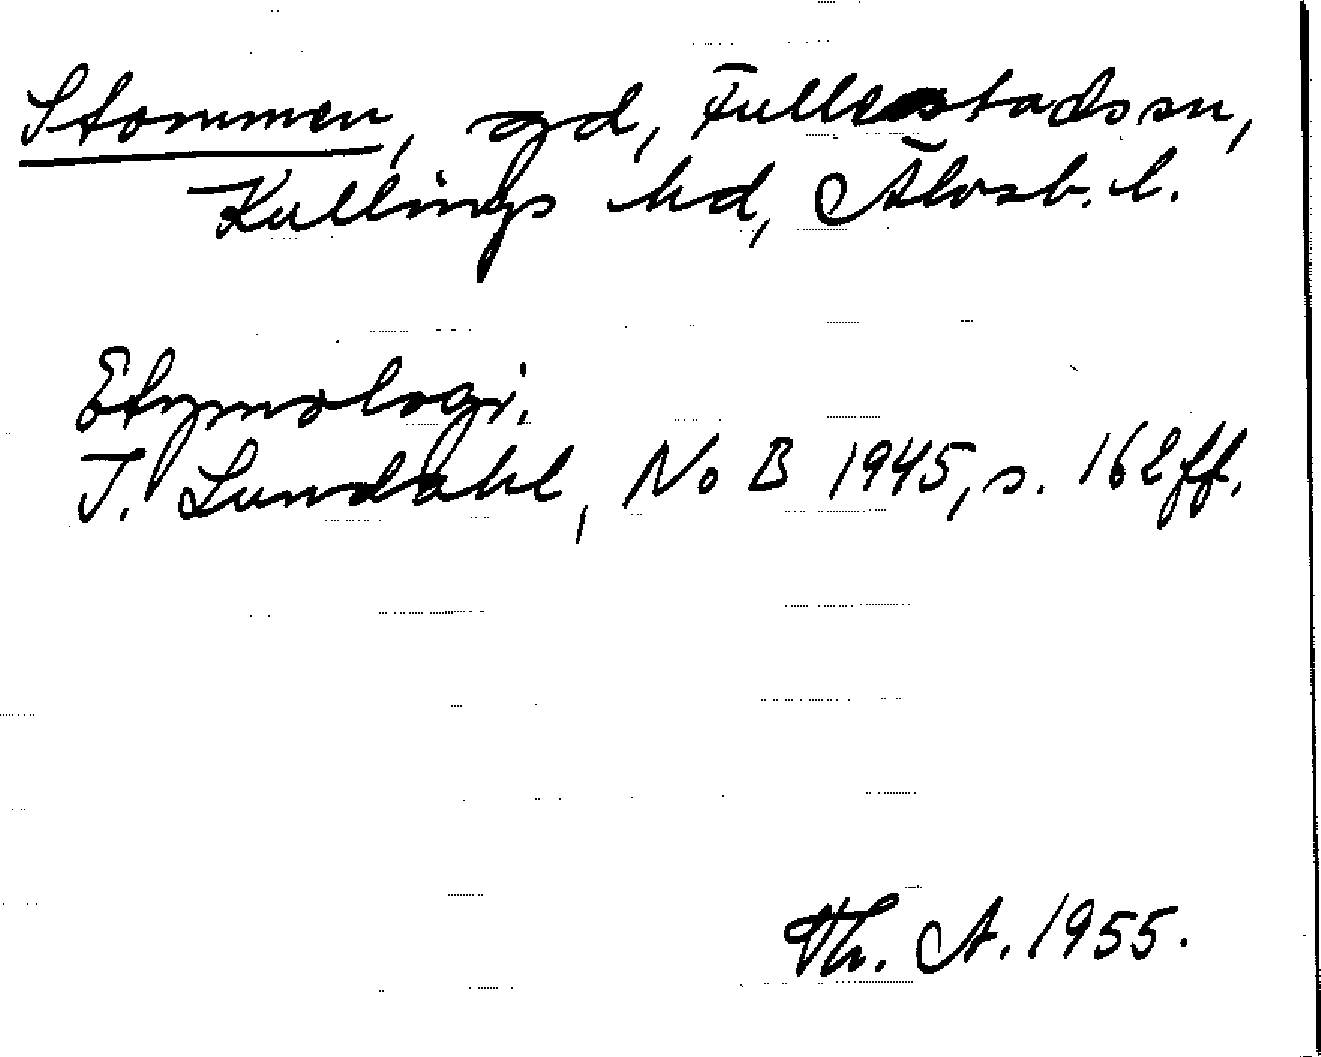 Stommen, gd, Fullestads sn,
Kullings hd, Älvsb. l.
Etymologi.
I. Lundahl, NoB 1945, s. 162 ff.
Th. A. 1955.